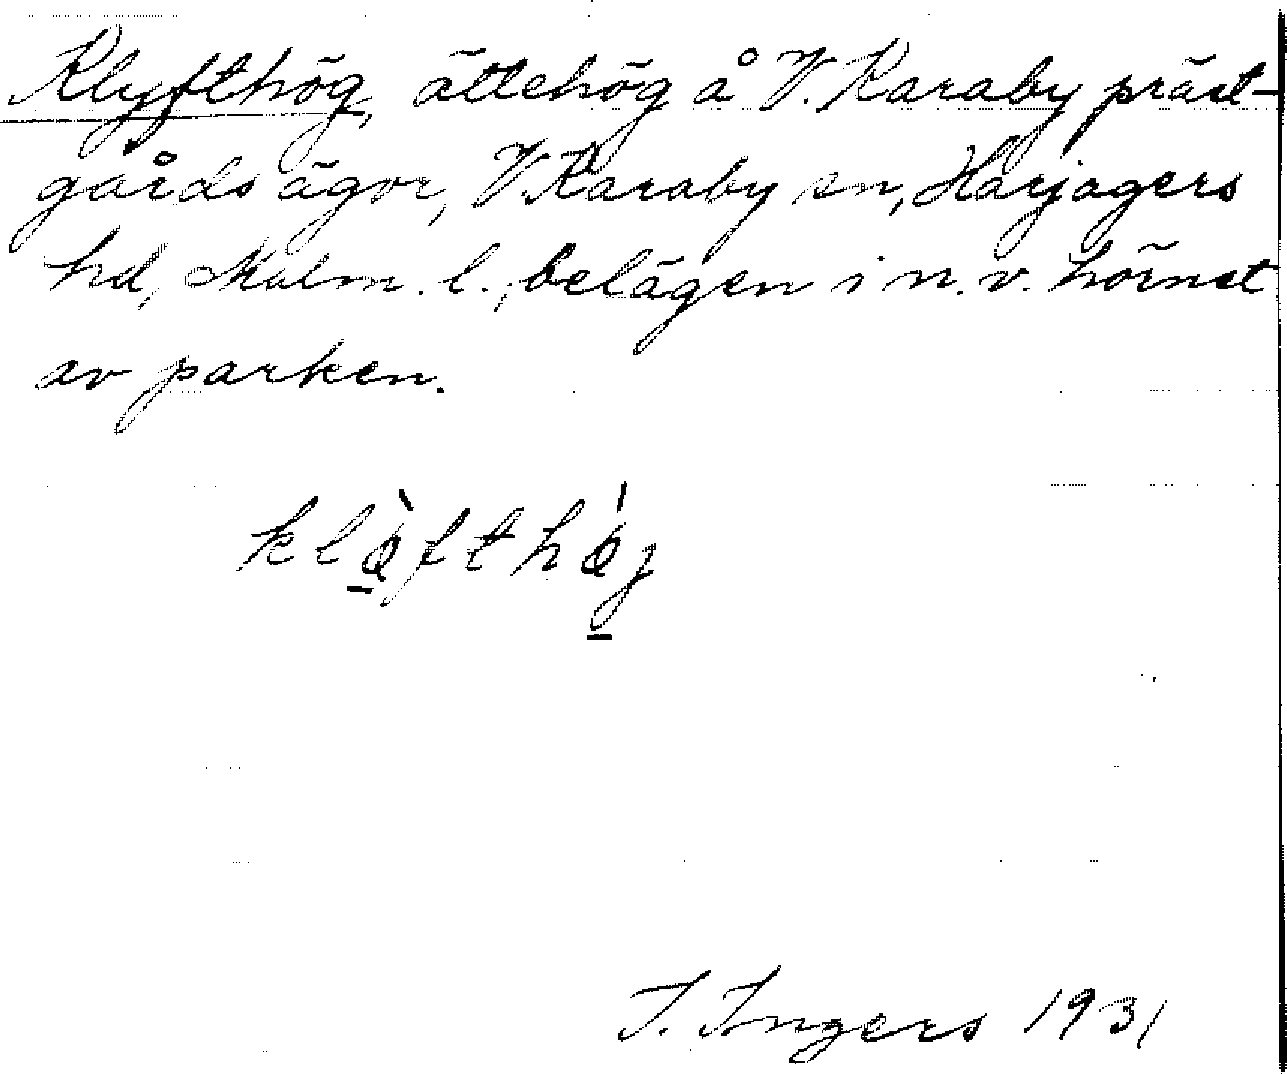 Klyfthög, ättehög å V. Karaby präst-
gårds ägor, V. Karaby sn, Harjagers
hd, Malm. l., belägen i n.v. hörnet
av parken.
klø̀fthǿj
I. Ingers 1931